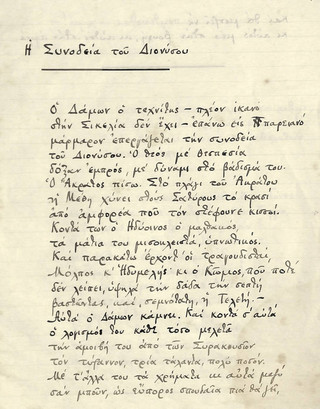 Η Συνοδεία τοῦ Διονύσου
Ὁ Δάμων ὁ τεχνίτης – πλέον ἱκανὸ
στὴν Σικελία δὲν ἔχει – ἐπάνω εἰς παριανὸ
μάρμαρον ἐπεξεργάζεται τὴν συνοδεία
τοῦ Διονύσου. Ὁ θεὸς μὲ θεσπεσία
δόξαν ἐμπρός, μὲ δύναμι στὸ βάδισμά του.
Ὁ Ἄκρατος πίσω. Στὸ πλάγι τοῦ Ἀκράτου
ἡ Μέθη χύνει στοὺς Σατύρους τὸ κρασὶ
ἀπὸ ἀμφορέα ποῦ τὸν στέφουνε κισσοί.
Κοντά των ὁ Ἡδύοινος ὁ μαλθακός,
τὰ μάτια του μισοκλειστά, ὑπνωτικός.
Καὶ παρακάτω ἔρχοντ' οἱ τραγουδισταί,
Μόλπος κ' Ἡδυμελής, κι ὁ Κῶμος ποῦ ποτὲ
δὲν λείπει, ὑψηλὰ τὴν δᾶδα τὴν σεπτὴ
βαστῶντας, καί, σεμνότατη, ἡ Τελετή. –
Αὐτὰ ὁ Δάμων κάμνει. Καὶ κοντὰ σ' αὐτὰ
ὁ λογισμός του κάθε τόσο μελετᾶ
τὴν ἀμοιβή του ἀπὸ τῶν Συρακουσῶν
τὸν τύραννον, τρία τάλαντα, πολὺ ποσόν.
Μὲ τ' ἄλλα του τὰ χρήματα κι αὐτὰ μαζὺ
σὰν μποῦν, ὡς εὔπορος σπουδαῖα πιὰ θὰ ζῇ,